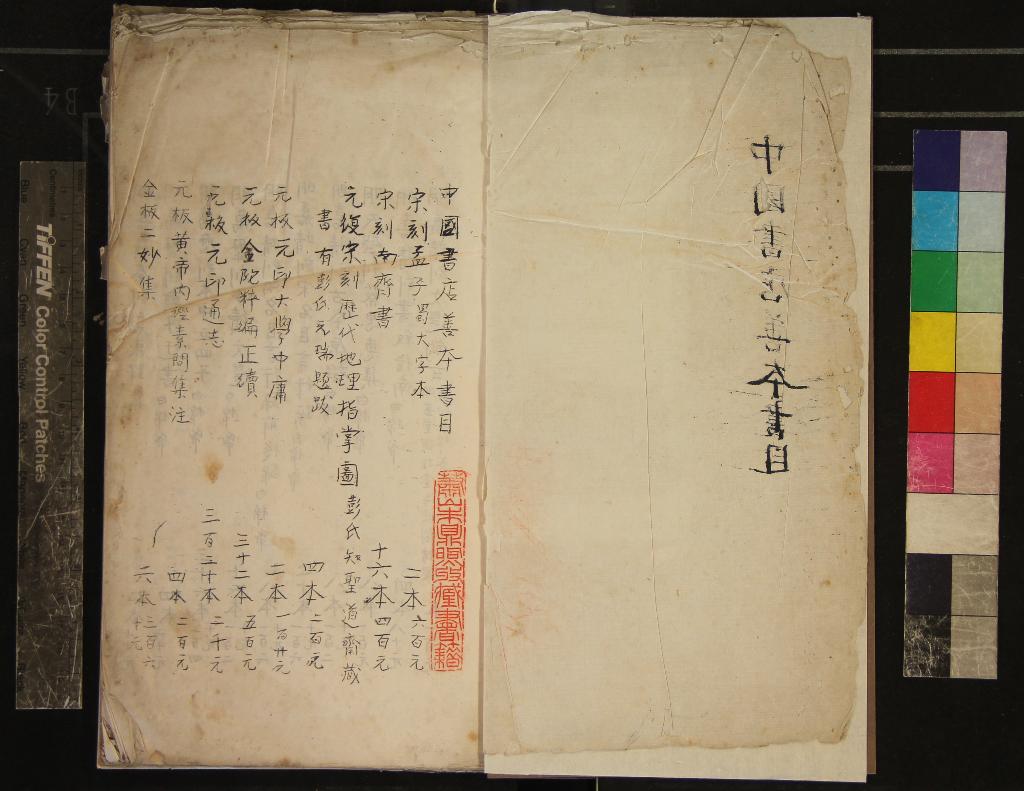 中國書店善本書目
中國書店善本書目
宋刻孟子 蜀大字本 二本 六百元
宋刻南齊書 十六本 四百元
元復宋刻歷代地理指掌圖 彭氏知聖道齋藏
書 有彭氏元瑞題跋 四本 二百元
元板元印大學中庸 二本 一百廿元
元板金陀粹編正續 三十二本 五百元
元板元印通志 三百二十本 二千元
元板黄帝内經素問集注 四本 二百元
金板二妙集 六本 三百六十元
蕭山朱鼎煦收藏書籍
B4
TIFFEN Color Control Patches
Blue
Cyan
Green
Yellow